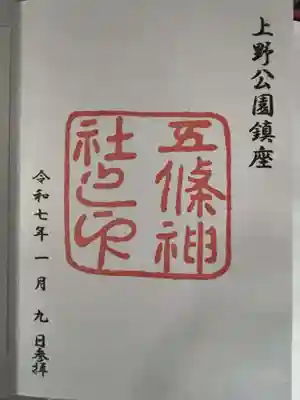 上野公園鎮座
五條神
社之印
令和七年一月九日参拝